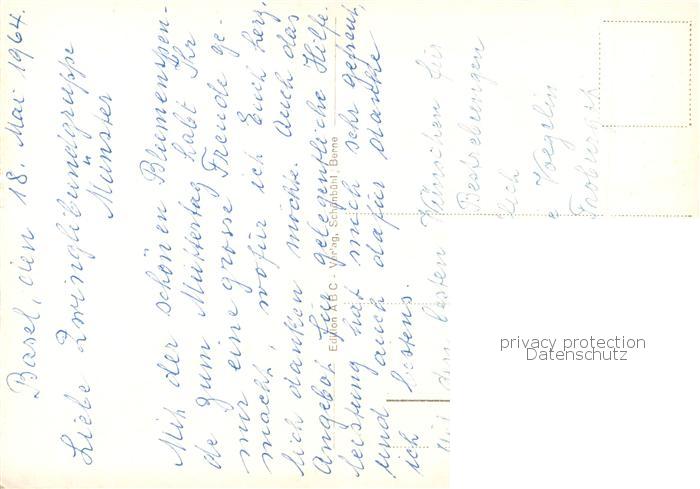 Basel, den 18. Mai 1964.
Liebe Zwinglibundgruppe
Münster
Mit der schönen Blumenspen-
de zum Muttertag habt Ihr
mir eine grosse Freude ge-
macht, wofür ich Euch herz-
lich danken möchte. Auch das
Angebot für gelegentliche Hilfe-
leistung hat mich sehr gefreut,
und auch dafür danke
ich bestens.
Mit den besten Wünschen für
Bestrebungen
lich
Voegelin
Froburgstr
Edition ABC - Verlag, Schönbühl, Berne
privacy protection
Datenschutz